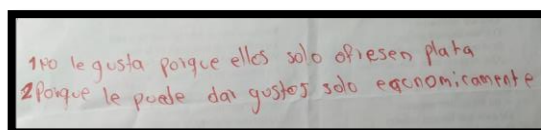 1 no le gusta porque elles solo ofresen plata
2 Porque le puede dar gustos solo economicamente